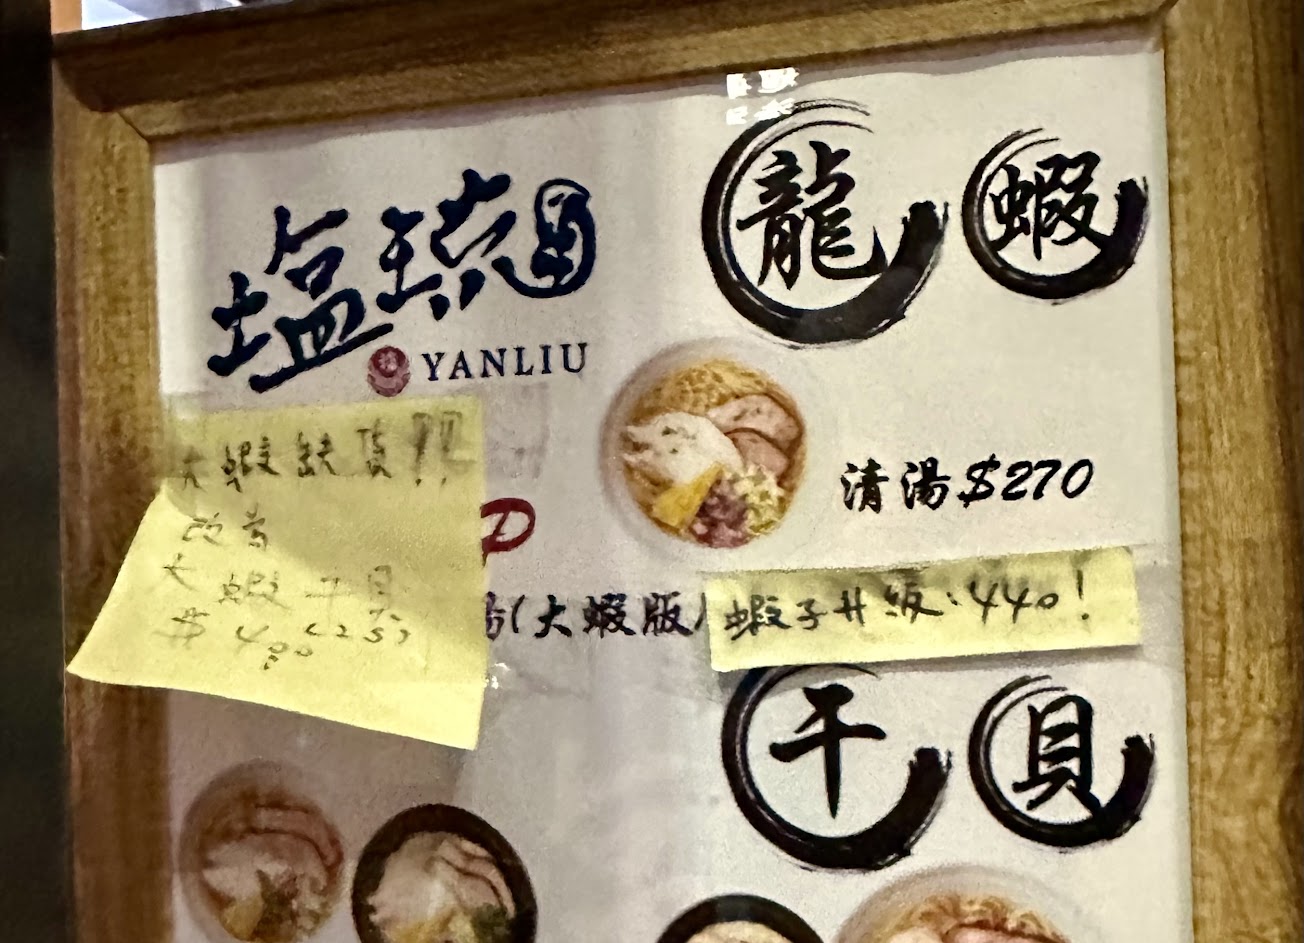 塩琉
YANLIU
龍蝦
清湯$270
大蝦缺貨!!
改為
大蝦干貝
$480(25)
P
湯(大蝦版)
蝦子升級:440!
干貝